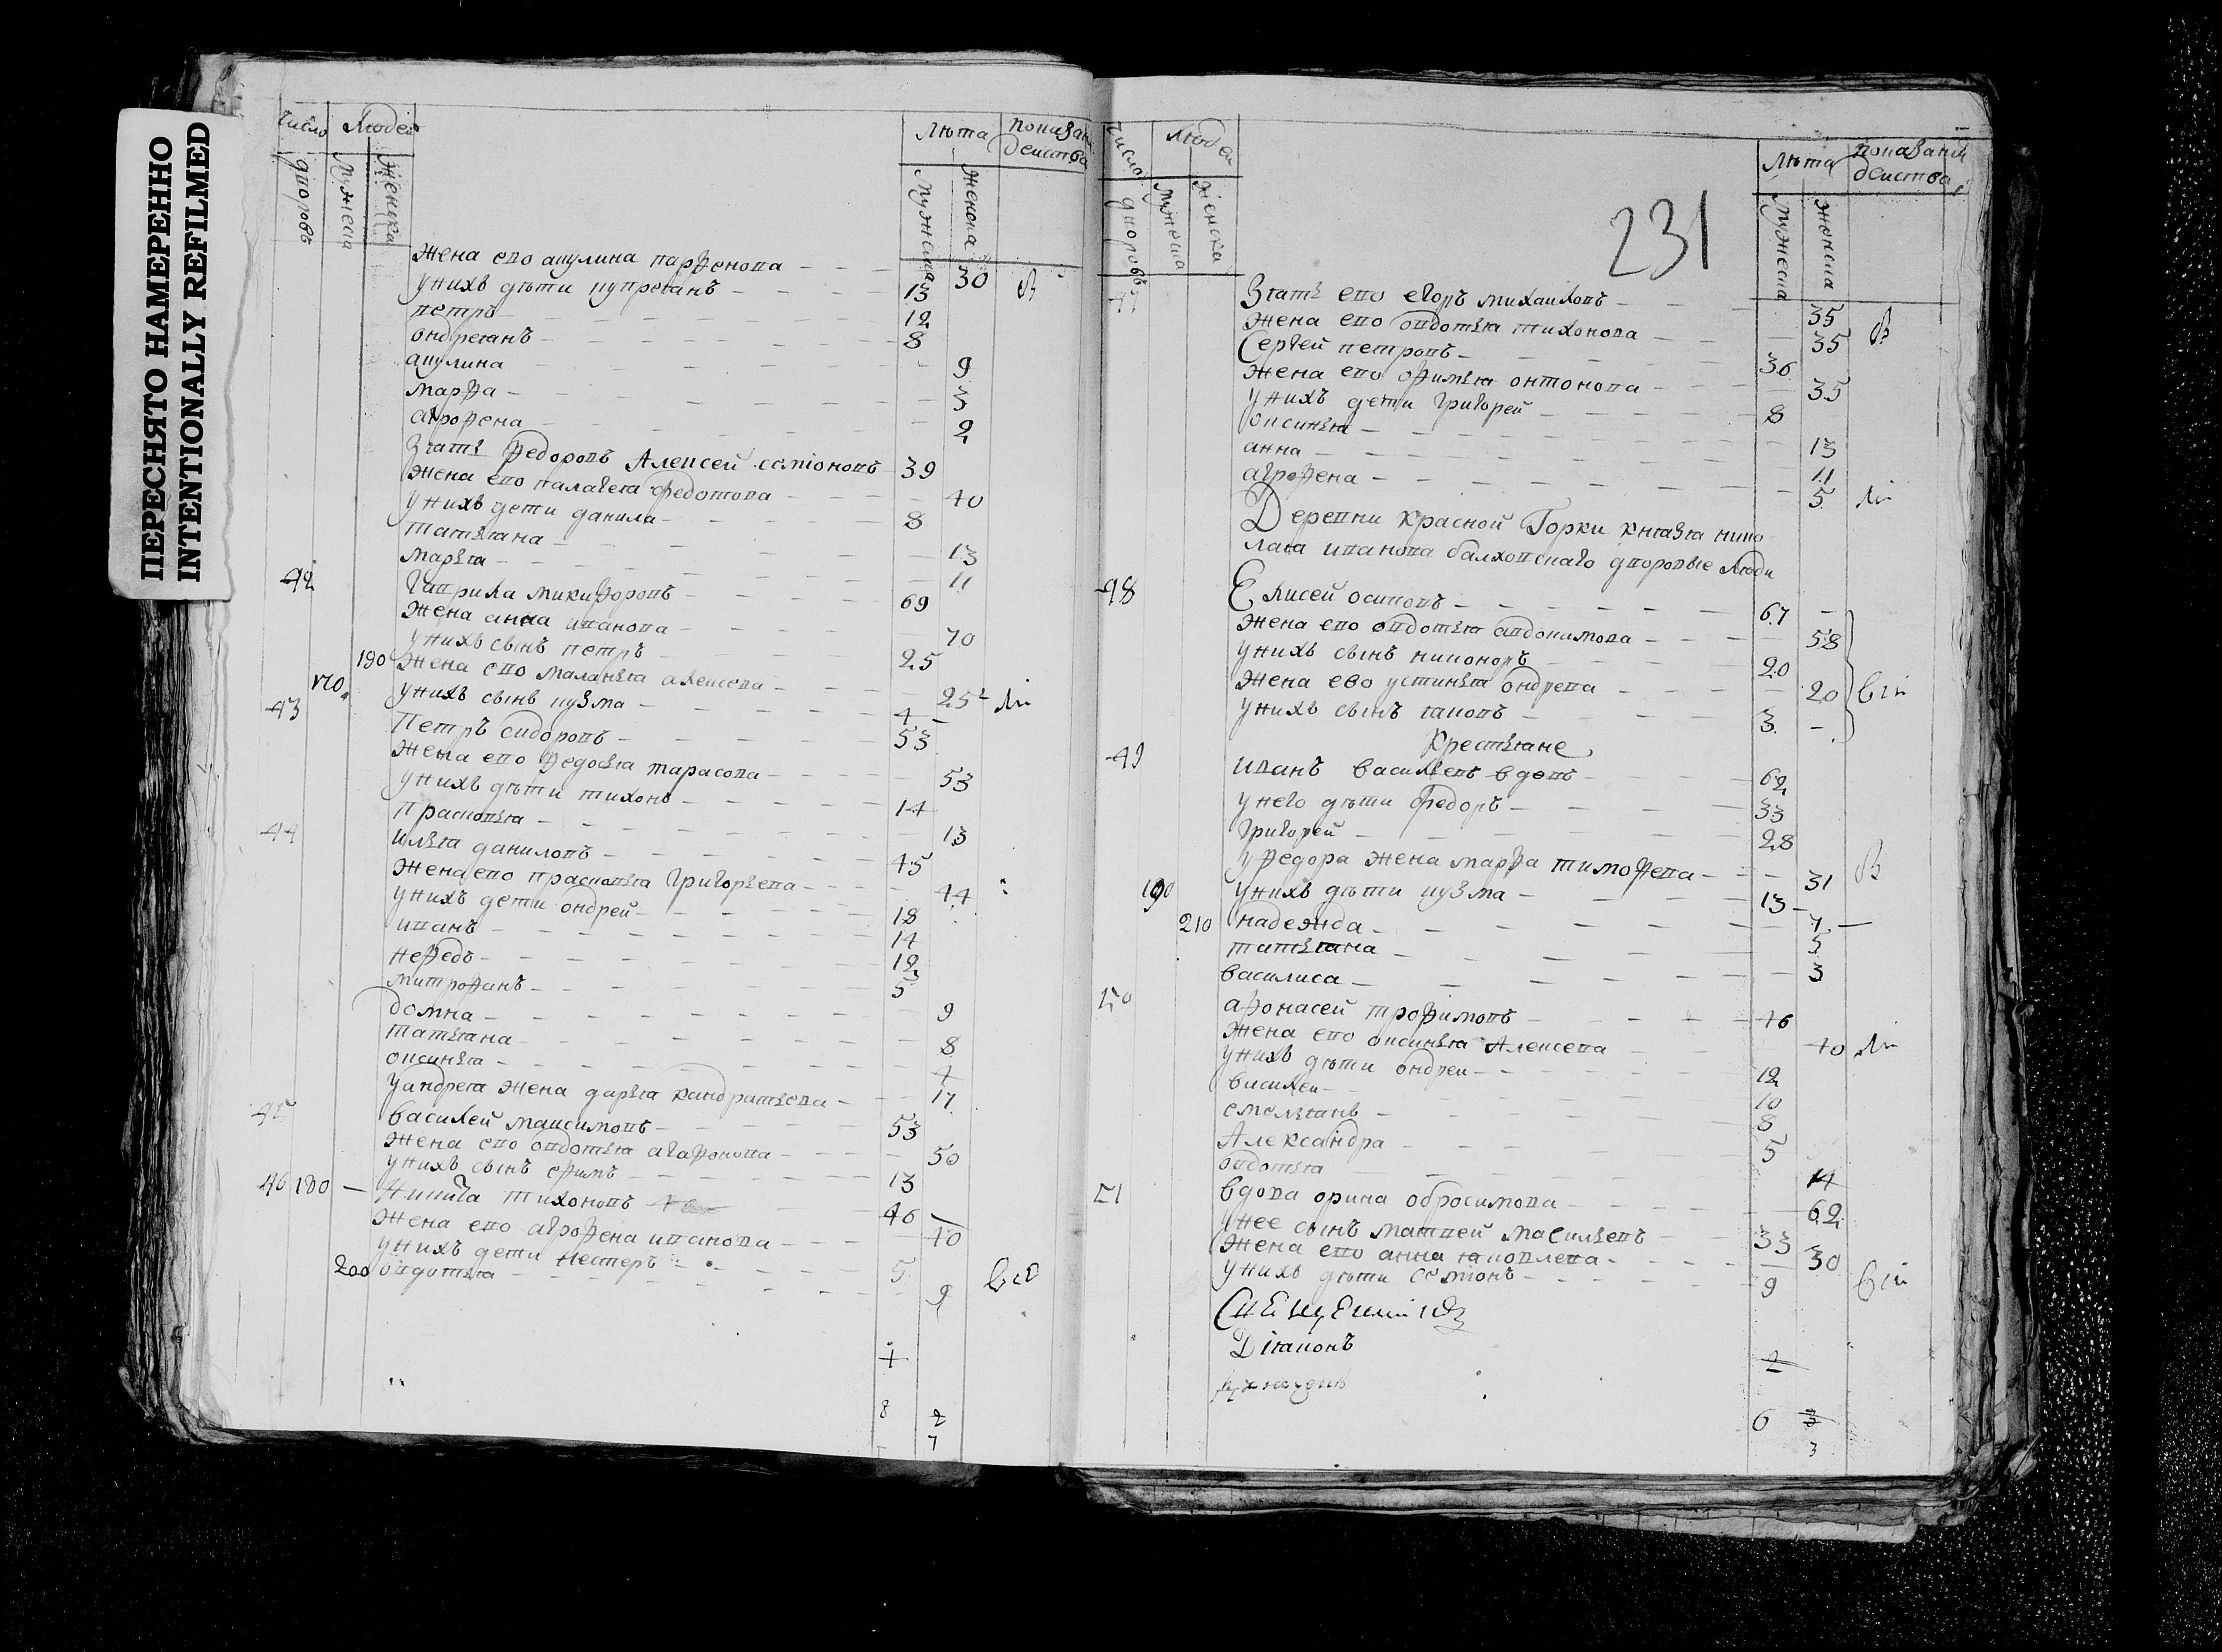 ПЕРЕСНЯТО НАМЕРЕННО
INTENTIONALLY REFILMED
число Людей Лѣта показани действа
дворовъ мужеска женска мужеска женска
Жена ево акулина парфенова 30 В
у нихъ дѣти купреянъ 13
петръ 12
ондреянъ 8
акулина 9
марфа 3
агрофена 2
Зять Федоровъ Алексей семионовъ 39
Жена ево палагея федотова 40
у нихъ дети данила 8
татьяна 13
марья 11
42 Гаврила микифоровъ 69
Жена анна иванова 70
у нихъ сынъ петръ 25
190 Жена ево маланья алексева 25
170 у нихъ сынъ кузма 4
43 Петръ сидоровъ 53
Жена ево федосья тарасова 53
у нихъ дѣти тихонъ 14
прасковья 13
44 илья даниловъ 45
Жена ево прасковья григорьева 44
у нихъ дети ондрей 18
иванъ 14
нефедъ 12
митрофанъ 5
домна 9
татьяна 8
оксинья 4
у андрея жена дарья кандратьева 17
45 василей максимовъ 53
Жена ево овдотья агафонова 50
у нихъ сынъ ефимъ 13
46 180 Никита тихоновъ 46
Жена ево агрофена иванова 40
у нихъ дети нестеръ 5
200 овдотья 9
8 7
231
число Людей Лѣта показани действа
дворовъ мужеска женска мужеска женска
47 Зять ево егоръ михаиловъ 35
Жена ево овдотья тихонова 35 В
Сергей петровъ 36
Жена ево офимья онтонова 35
у нихъ дети григорей 8
оксинья 13
анна 11
агрофена 5
Деревни Красной Горки князя нико
лая иванова балховскаго дворовые люди
48 Елисей осиповъ 67
Жена ево овдотья авдокимова 58
у нихъ сынъ никоноръ 20
Жена ево устинья ондрева 20
у нихъ сынъ яковъ 3
Крестьяне
49 иванъ васильевъ вдовъ 62
у него дѣти федоръ 33
григорей 28
у федора жена марфа тимофева 31 В
190 у нихъ дѣти кузма 13
210 надежда 7
татьяна 5
василиса 3
50 афонасей трофимовъ 46
Жена ево оксинья Алексева 40
у нихъ дѣти ондреи 12
василеи 10
емельянъ 8
Александра 5
овдотья 14
51 вдова орина обросимова 62
у нее сынъ матвей васильевъ 33
Жена ево анна яковлева 30
у нихъ дѣти семионъ 9
Діаконъ
6 3